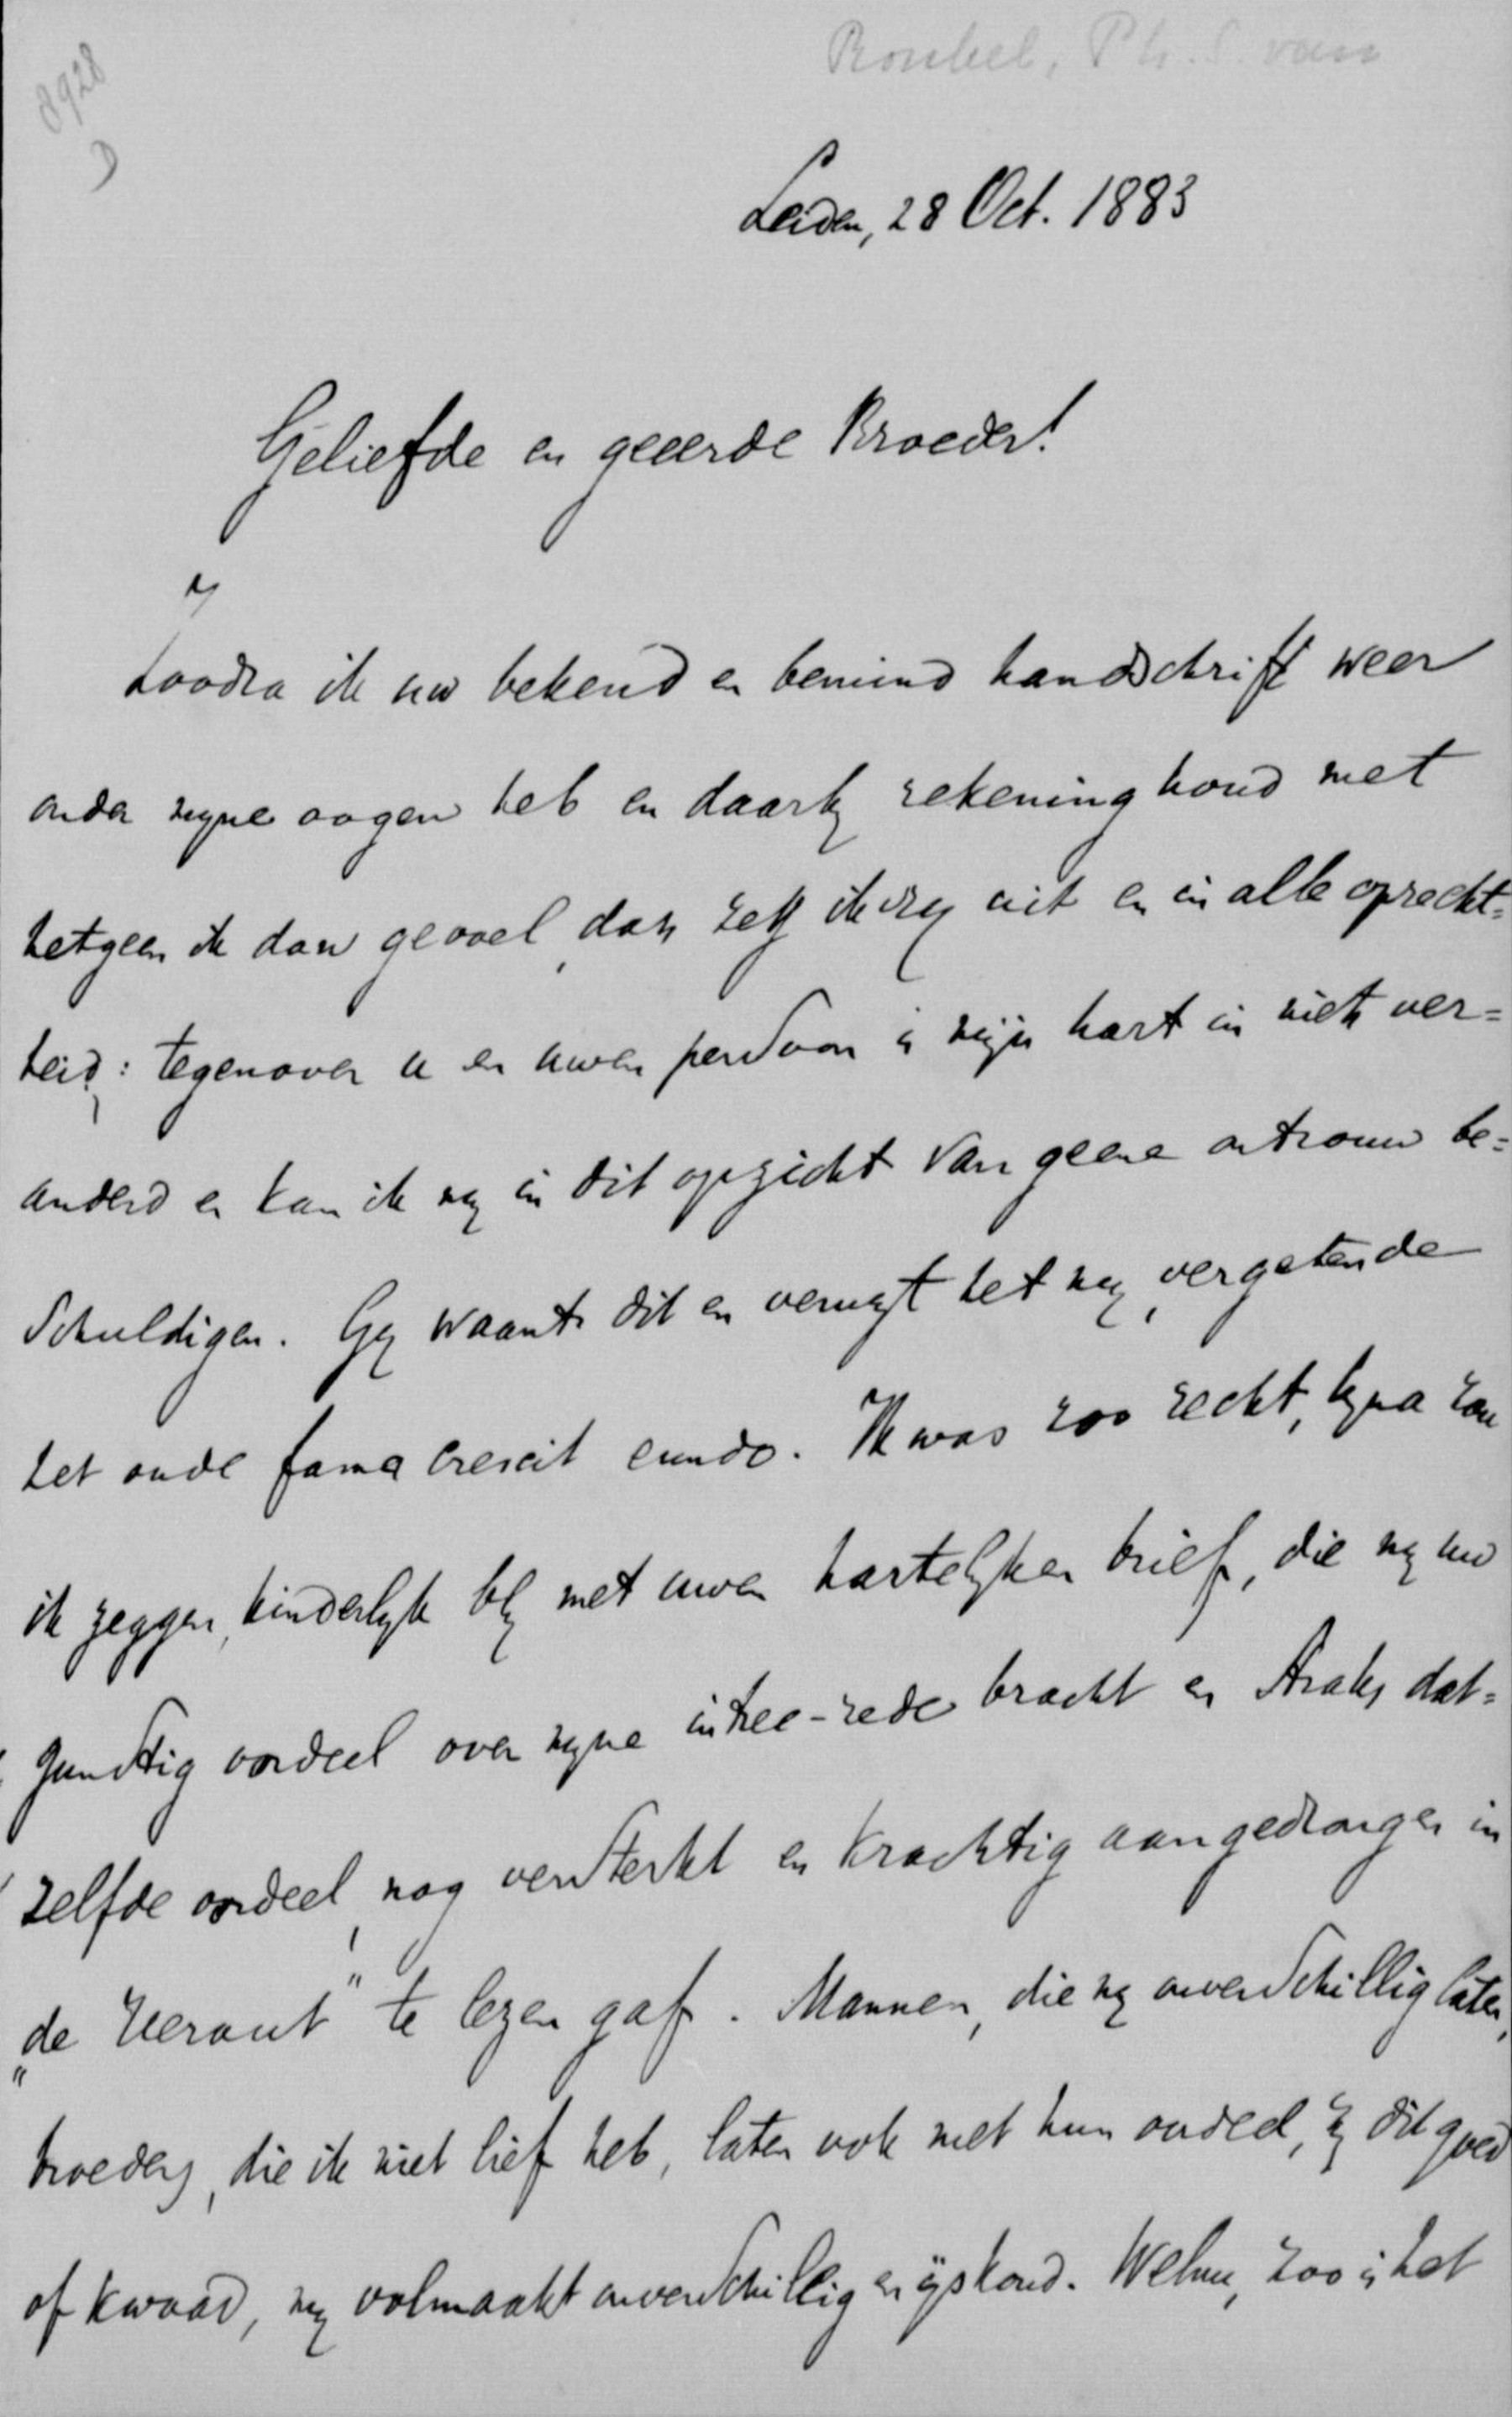 Ronkel, Ph. S. van
8928
D
Leiden, 28 Oct. 1883
Geliefde en geeerde Broeder!
Zoodra ik uw bekend en bemind handschrift weer
onder myne oogen heb en daarby rekening houd met
hetgeen ik dan gevoel, dan zeg ik vry uit en in alle oprecht=
heid: tegenover u en uwen persoon is mijn hart in niets ver=
anderd en kan ik my in dit opzicht van geene ontrouw be=
schuldigen. Gy waant dit en verwyt het my, vergetende
het oude fama crescit eundo. Ik was zoo recht, byna zou
ik zeggen, kinderlyk bly met uwen hartelyken brief, die my uw
gunstig oordeel over myne intree-rede bracht en straks dat=
zelfde oordeel, nog versterkt en krachtig aangedrongen in
„de Heraut" te lezen gaf. Mannen, die my onverschillig laten,
broeders, die ik niet lief heb, laten ook met hun oordeel, zy dit goed
of kwaad, my volmaakt onverschillig en yskoud. Welnu, zoo is het